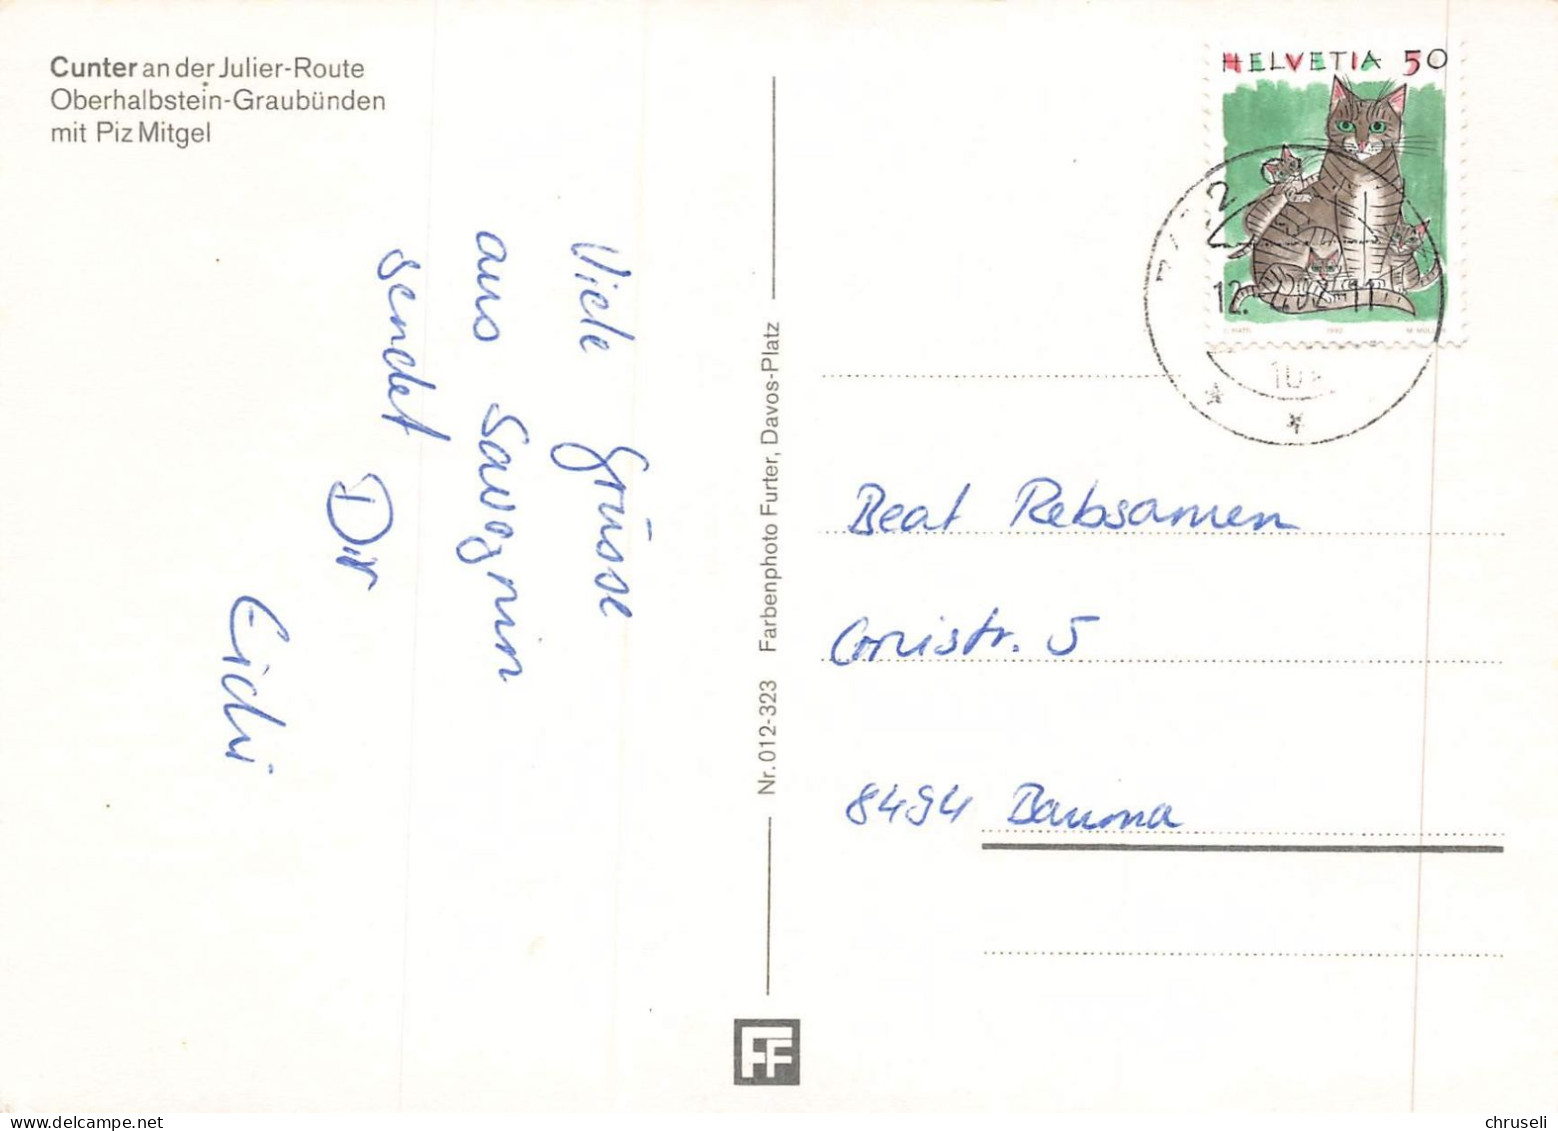 Cunter an der Julier-Route
Oberhalbstein-Graubünden
mit Piz Mitgel
Viele Grüsse
aus Savognin
sendet Dir
Eichi
Nr. 012-323 Farbenphoto Furter, Davos-Platz
FF
HELVETIA 50
1990
12.
11
Beat Rebsamen
5
8494 Bauma
chruseli